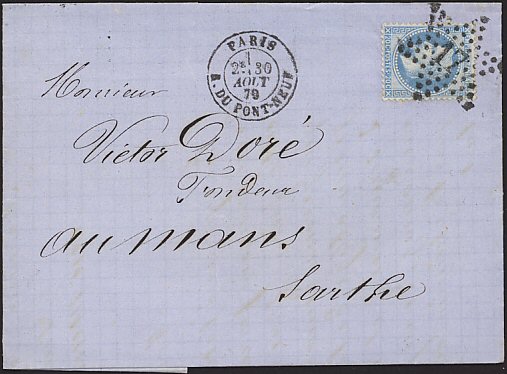 PARIS
1
2E 30
AOUT
79
R. DU PONT-NEUF
1
Monsieur
Victor Doré
Fondeur
au mans
Sarthe